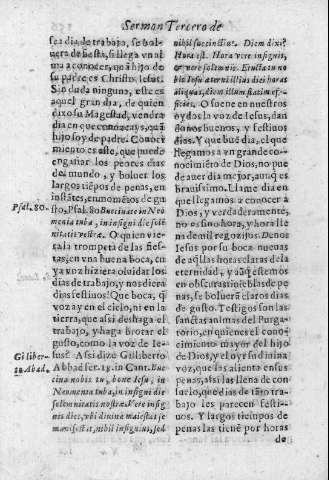 Sermon Tercero de
sea dia de trabajo, se bol-
uera de fiesta, si llega vn al
ma a conocer, q̃ aũ hijo de
su padre es Christo Iesus.
Sin duda ninguna, este es
aquel gran dia, de quien
dixo su Magestad, vendra
dia en que conozcays, q̃ soy
hijo soy de padre. Conoci
miento es este, que puede
engañar los peores dias
del mundo, y boluer los
largos tiẽpos de penas, en
instãtes, en momẽtos de gu
sto, Psal. 80. Buccinate in Neo
menia tuba, in insigni die sole-
nitatis vestræ. O quien viera
la trompeta de las fies-
tas, en vna buena boca, cu
ya voz hiziera oluidar los
dias de trabajo, y nos diera
dias festinos! Que boca, q̃
voz ay en el cielo, ni en la
tierra, que assi deshaga el
trabajo, y haga brotar el
gusto, como la voz de Ie-
sus? Assi dize Gilliberto
Abbad ser. 18. in Cant. Buc
cina nobis tu, bone Iesu, in
Neomenia tuba, in insigni die
solemnitatis nostræ. Vere insig
nis dies, vbi diuinæ maiestas se
manifestat, nihil insignius, sed
Psal. 80.
Giliber-
to Abad.
nihil succinctius. Diem dixi?
Hora est. Hora vere insignis,
& vere solemnis. Eructa in no
bis Iesu æterni illius diei horas
aliquas, diem illum statim ef-
ficies. O suene en nuestros
oydos la voz de Iesus, dan
donos buenos, y festinos
dias. Y que buen dia, el que
llegamos a vn grande co-
nocimiẽto de Dios, no pue
de auer dia mejor, aunq̃ es
brauissimo. Llame dia en
que llegamos a conocer a
Dios, y verdaderamente,
no es sino hora, y hora lle
na de mil regozijos. Denos
Iesus por su boca nueuas
de aq̃llas horas claras de la
eternidad, y aũq̃ estemos
en obscuras tinieblas de pe
nas, se boluerã claros dias
de gusto. Testigos son las
sanctas animas del Purga-
torio, en quienes el conoci-
miento mayor del hijo
de Dios, y el oyr su diuina
voz, que las alienta en sus
penas, assi las llena de con
suelo, que los dias de tãto tra
bajo les parecen festi-
uos. Y largos tiempos de
penas las tienẽ por horas
de